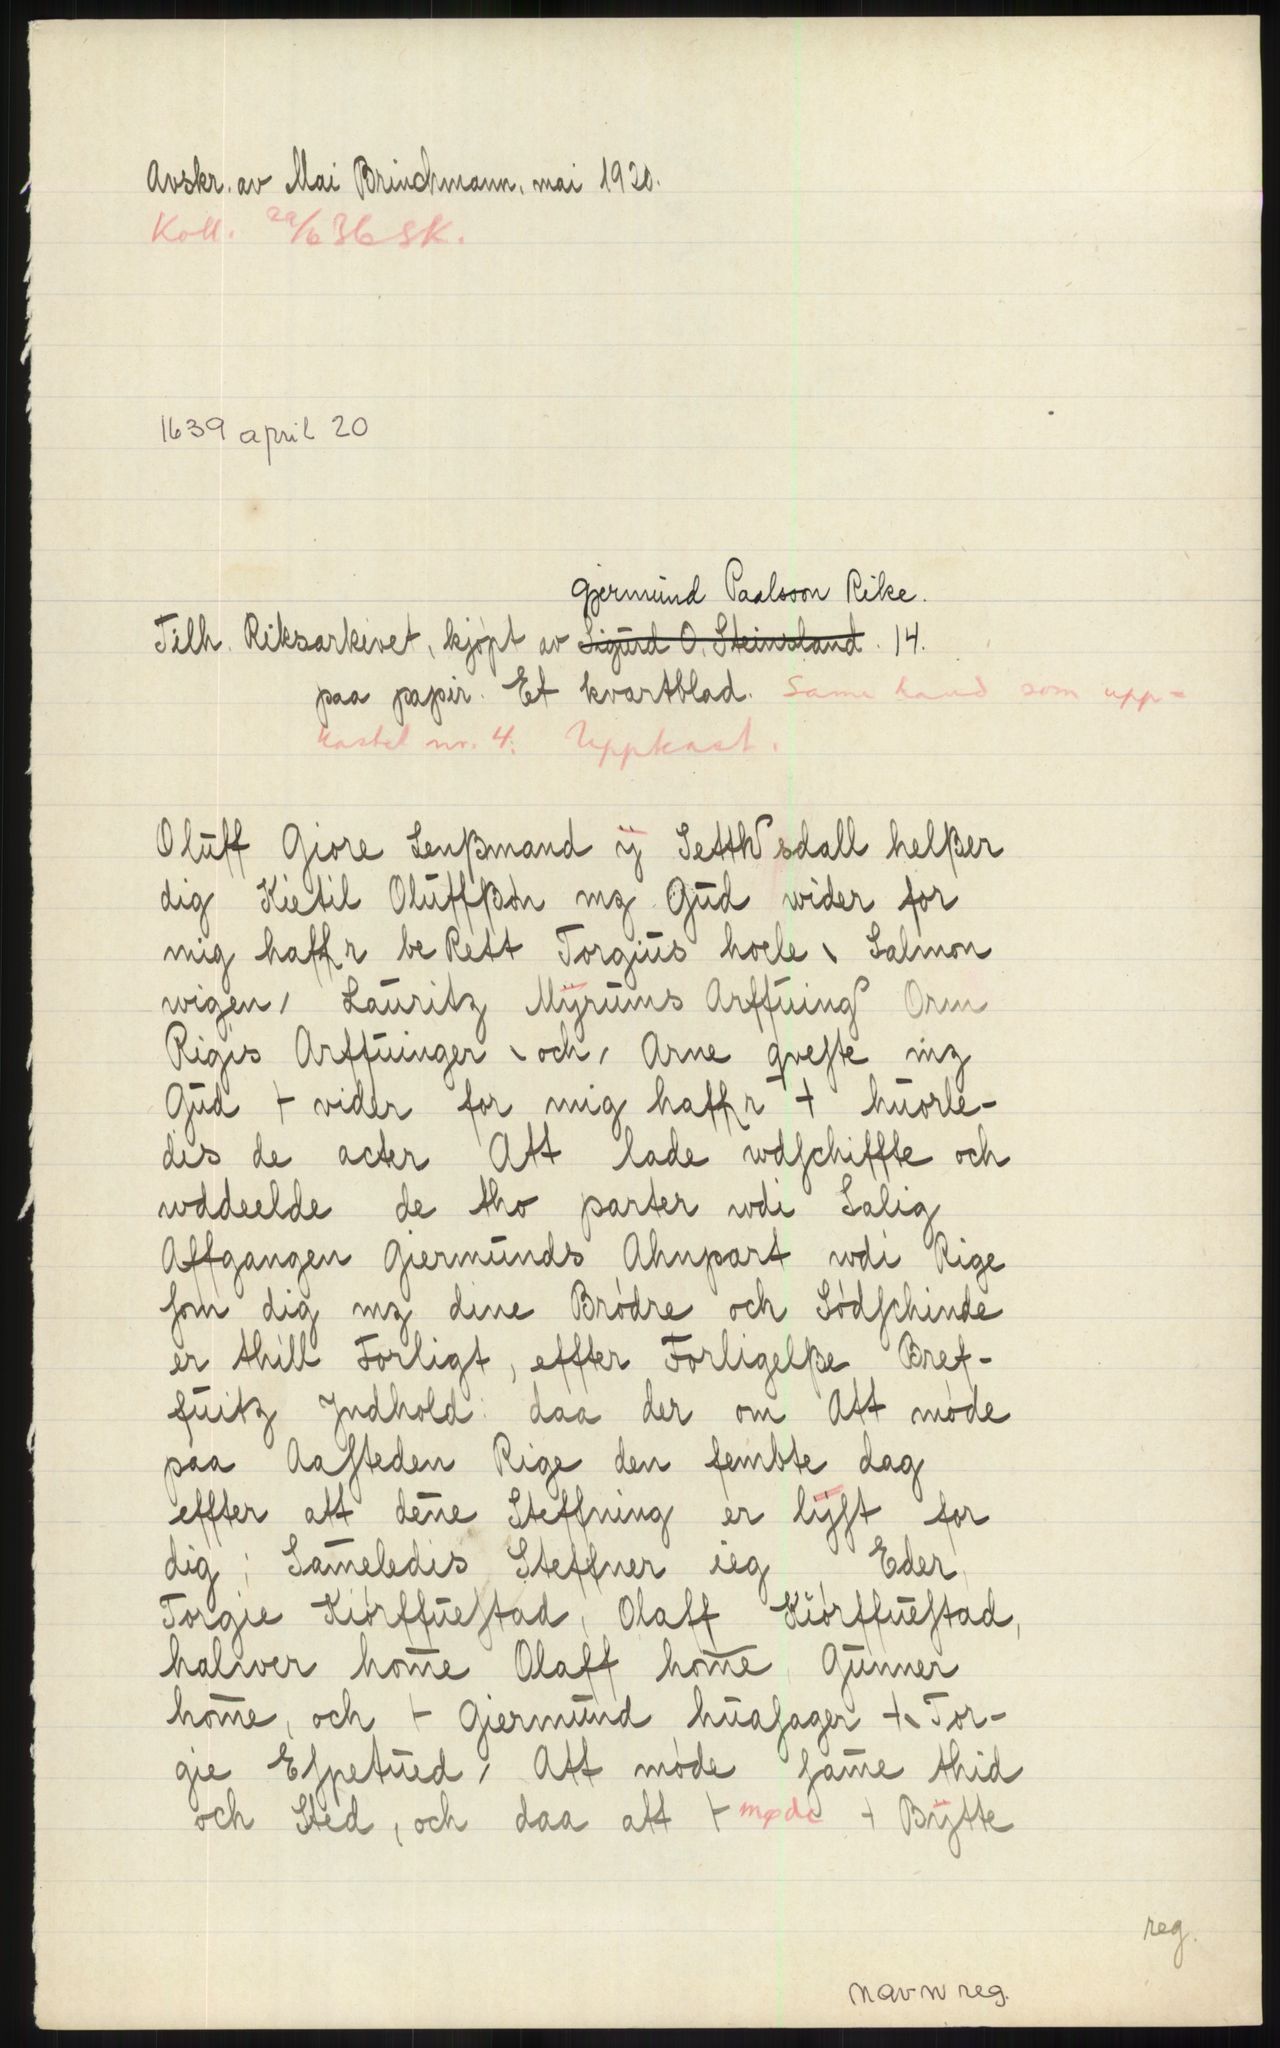 Avskr. av Mai Brinchmann, mai 1920.
Koll. 29/6 36 SK.
1639 april 20
Gjermund Paalsson Rike.
Tilh. Riksarkivet, kjøpt av Sigurd O. Steinsland. 14.
paa papir. Et kvartblad. Same hand som upp=
kastet nr. 4. Uppkast.
Oluff Giore Lenßmand ÿ Setthsdall helßer
dig Kietil Oluffßøn mz Gud wider for
mig haffr be Rett Torgius hoele, Salmon
wigen, Lauritz Mÿrums Arffuing Orm
Rigis Arffuinger, och, Arne qveste mz
Gud ⊢ vider for mig haffr + huorle-
dis de acter Att lade wdschiffte och
wddeelde de tho parter wdi Salig
Affgangen Giermunds Ahnpart wdi Rige
som dig mz dine Brødre och Södschinde
er thill Forligt, effter Forligelße Bref-
fuitz Jndhold: daa der om Att møde
paa Aasteden Rige den fembte dag
effter att dene Steffning er lÿst for
dig; Sameledis Steffner ieg Eder
Torgie Kiørffuestad, Olaff Kiørffuestad,
haluer home Olaff home, Gunner
home, och ⊢ Giermund huasager +, Tor-
gie Espetued, Att møde same thid
och Sted, och daa att ⊢ møde + Bÿtte
reg.
navnreg.